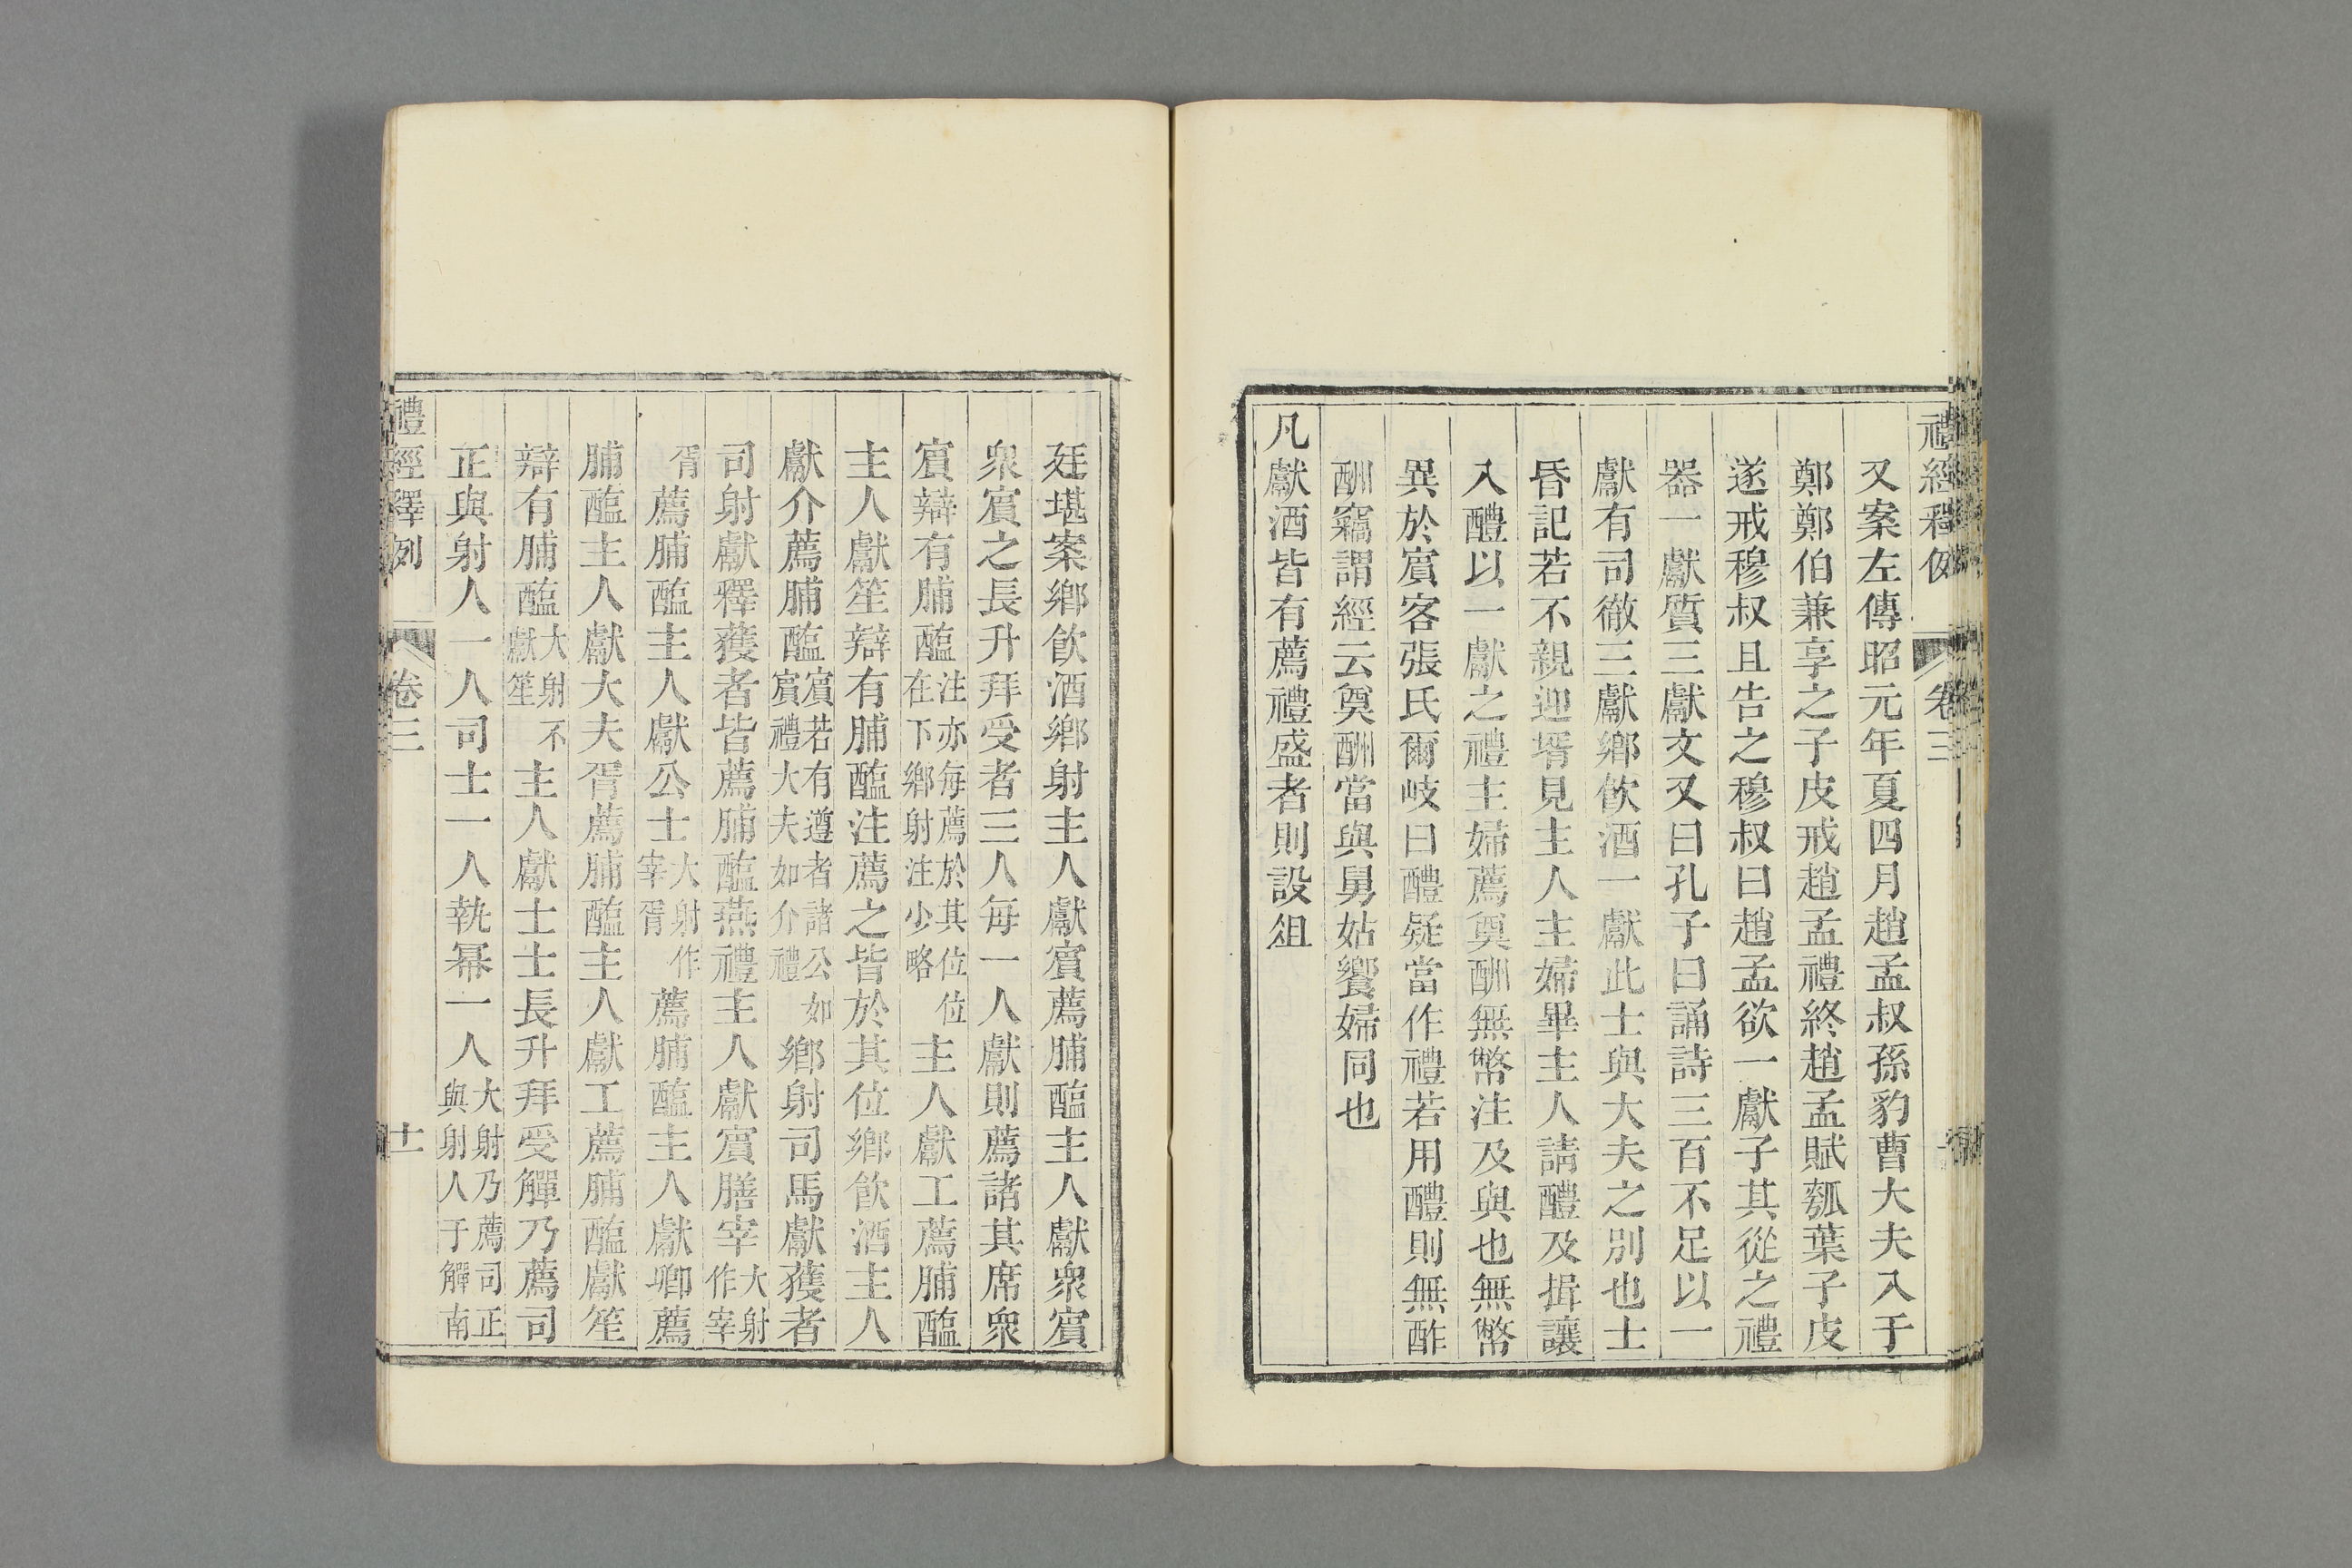 禮經釋例 卷三
又案左傳昭元年夏四月趙孟叔孫豹曹大夫入于
鄭鄭伯兼享之子皮戒趙孟禮終趙孟賦瓠葉子皮
遂戒穆叔且告之穆叔曰趙孟欲一獻子其從之禮
器一獻質三獻文又曰孔子曰誦詩三百不足以一
獻有司徹三獻鄉飲酒一獻此士與大夫之別也士
昏記若不親迎壻見主人主婦畢主人請醴及揖讓
入醴以一獻之禮主婦薦奠酬無幣注及與也無幣
異於賓客張氏爾岐曰醴疑當作禮若用醴則無酢
酬竊謂經云奠酬當與舅姑饗婦同也
凡獻酒皆有薦禮盛者則設俎
廷堪案鄉飲酒鄉射主人獻賓薦脯醢主人獻衆賓
衆賓之長升拜受者三人每一人獻則薦諸其席衆
賓辯有脯醢注亦每薦於其位位在下鄉射注少略主人獻工薦脯醢
主人獻笙辯有脯醢注薦之皆於其位鄉飲酒主人
獻介薦脯醢賓若有遵者諸公如賓禮大夫如介禮鄉射司馬獻獲者
司射獻釋獲者皆薦脯醢燕禮主人獻賓膳宰大射作宰
胥薦脯醢主人獻公士大射作宰胥薦脯醢主人獻卿薦
脯醢主人獻大夫胥薦脯醢主人獻工薦脯醢獻笙
辯有脯醢大射不獻笙主人獻士士長升拜受觶乃薦司
正與射人一人司士一人執冪一人大射乃薦司正與射人于觶南
禮經釋例 卷三 十一